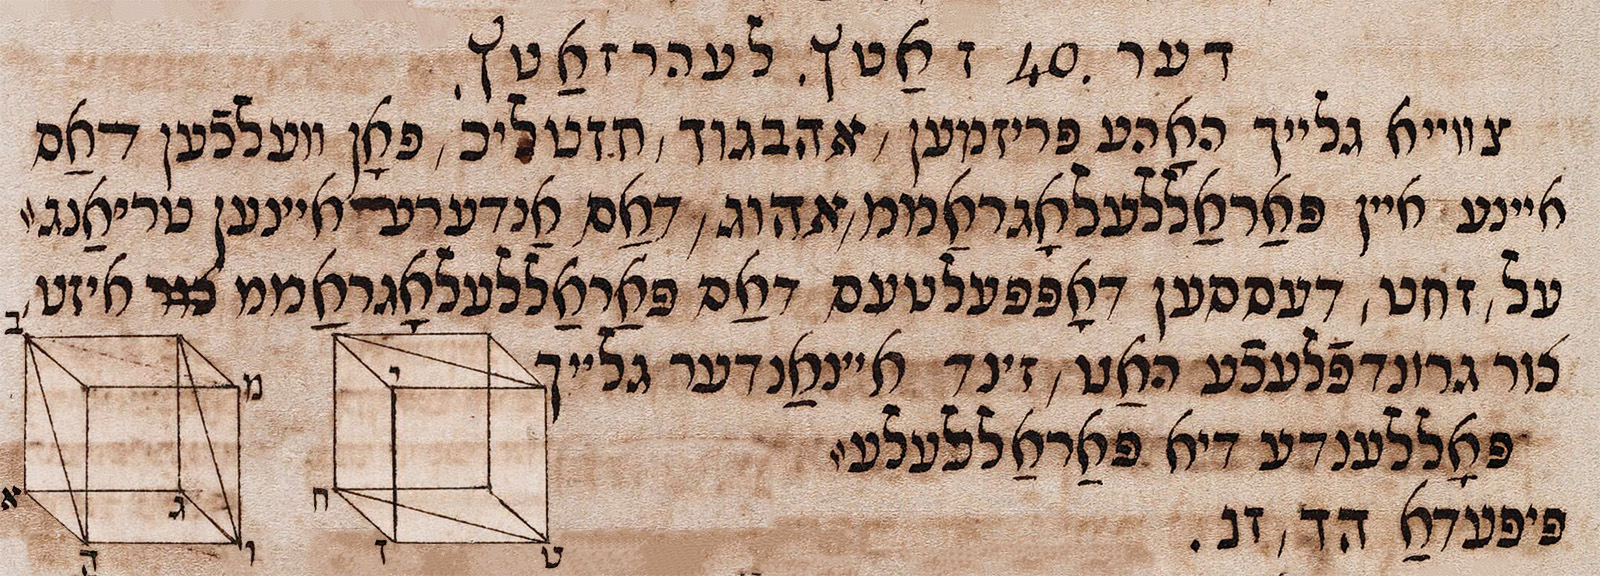 דער .40 זאַטץ. לעהרזאַטץ.
צווייא גלייך האָהע פריזמען, אהבגוד, חזטליכ, פאָן וועלכֿען דאַס
איינע איין פּאַראַללעלאָגראַממ, אהוג, דאַס אַנדערע איינען טריאַנג״
על, זחט, דעססען דאָפּפּעלטעס דאַס פּאַראַללעלאָגראַממ איזט,
צור גרונדפֿלעכֿע האַט, זינד איינאַנדער גלייך
פּאָללענדע דיא פּאַראַללעלע״
פּיפּעדאַ הד, זנ.
ב
מ
י
א
ג
ה
ו
ח
ז
ט